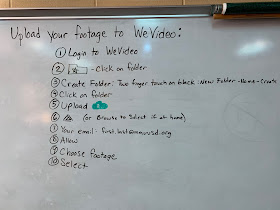 Upload your footage to WeVideo:
① Login to WeVideo
② - Click on folder
③ Create Folder: Two finger touch on black: New Folder-Name-Create
④ Click on folder
⑤ Upload
⑥ (or Browse to Select if at home)
⑦ Your email - first.last@
⑧ Allow
⑨ Choose footage
⑩ Select